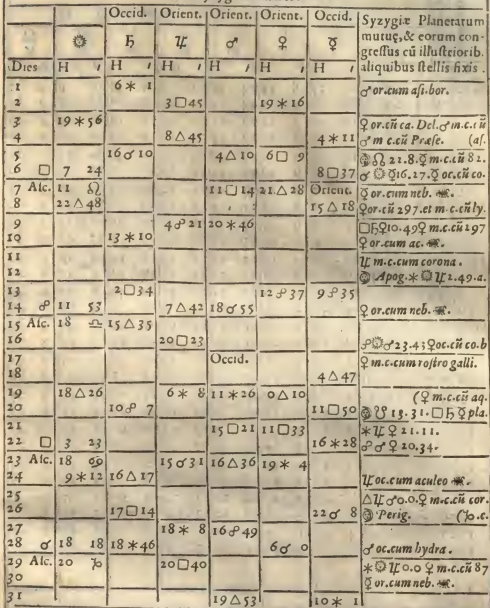 Occid. Orient. Orient. Orient. Occid. Syzygiæ Planetarum
☼ ♄ ♃ ♂ ♀ ☿ mutuę, & eorum con-
greſſus cũ illuſtriorib.
Dies H ′ H ′ H ′ H ′ H ′ H ′ aliquibus ſtellis fixis .
1 6 ⚹ 1
2 3 □ 45 19 ⚹ 16 ♂ or.cum aſi.bor.
3 19 ⚹ 56 ♀ or.cũ ca. Del. ♂ m.c.cũ
4 8 △ 45 4 ⚹ 11 ♂ m c.cũ Præſe. (aſ.
5 16 ☌ 10 4 △ 10 6 □ 9 ☊ 21.8.☿ m.c.cũ 82.
6 □ 7 24 8 □ 37 ☌ ☼ ☿ 16.27.☿ oc.cũ co.
7 Aſc. 11 ♌ 11 □ 14 21 △ 28 Orient. ☿ or.cum neb.
8 22 △ 48 15 △ 18 ♀ or.cũ 297.et m-c.cũ ly.
9 4 ☍ 21 20 ⚹ 46 □ ♄ ♀ 10.49 ♀ m.c.cũ 197
10 13 ⚹ 10 ♀ or.cum ac.
11 ♃ m.c.cum corona .
12 Apog. ⚹ ☼ ♃ 2.49.a.
13 2 □ 34 12 ☍ 37 9 ☍ 35
14 ☍ 11 53 7 △ 42 18 ☌ 55 ♀ or.cum neb.
15 Aſc. 18 ♎ 15 △ 35
16 20 □ 23 ☍ ☼ ♂ 23.43 ♀ oc.cũ co.b
17 Occid. ♀ m.c.cum roſtro galli.
18 4 △ 47
19 18 △ 26 6 ⚹ 8 11 ⚹ 26 0 △ 10 (♀ m.c.cũ aq.
20 10 ☍ 7 11 □ 50 ☋ 13.31.□ ♄ ☿ pla.
21 15 □ 21 11 □ 33 ⚹ ♃ ♀ 21.11.
22 □ 3 23 16 ⚹ 28 ☍ ♂ ♀ 20.34.
23 Aſc. 18 ♋ 15 ☌ 31 16 △ 36 19 ⚹ 4
24 9 ⚹ 12 16 △ 17 ♃ oc.cum aculeo
25 △ ♃ ♂ 0.0.♀ m.c.cũ cor.
26 17 □ 14 22 ☌ 8 Perig.
27 18 ⚹ 8 16 ☍ 49
28 ☌ 18 18 18 ⚹ 46 6 ☌ 0 ♂ oc.cum hydra .
29 Aſc. 20 ♑ 20 □ 40 ⚹ ☼ ♃ 0.0 ♀ m.c.cũ 87
30 ☿ or.cum neb.
31 19 △ 53 10 ⚹ 1